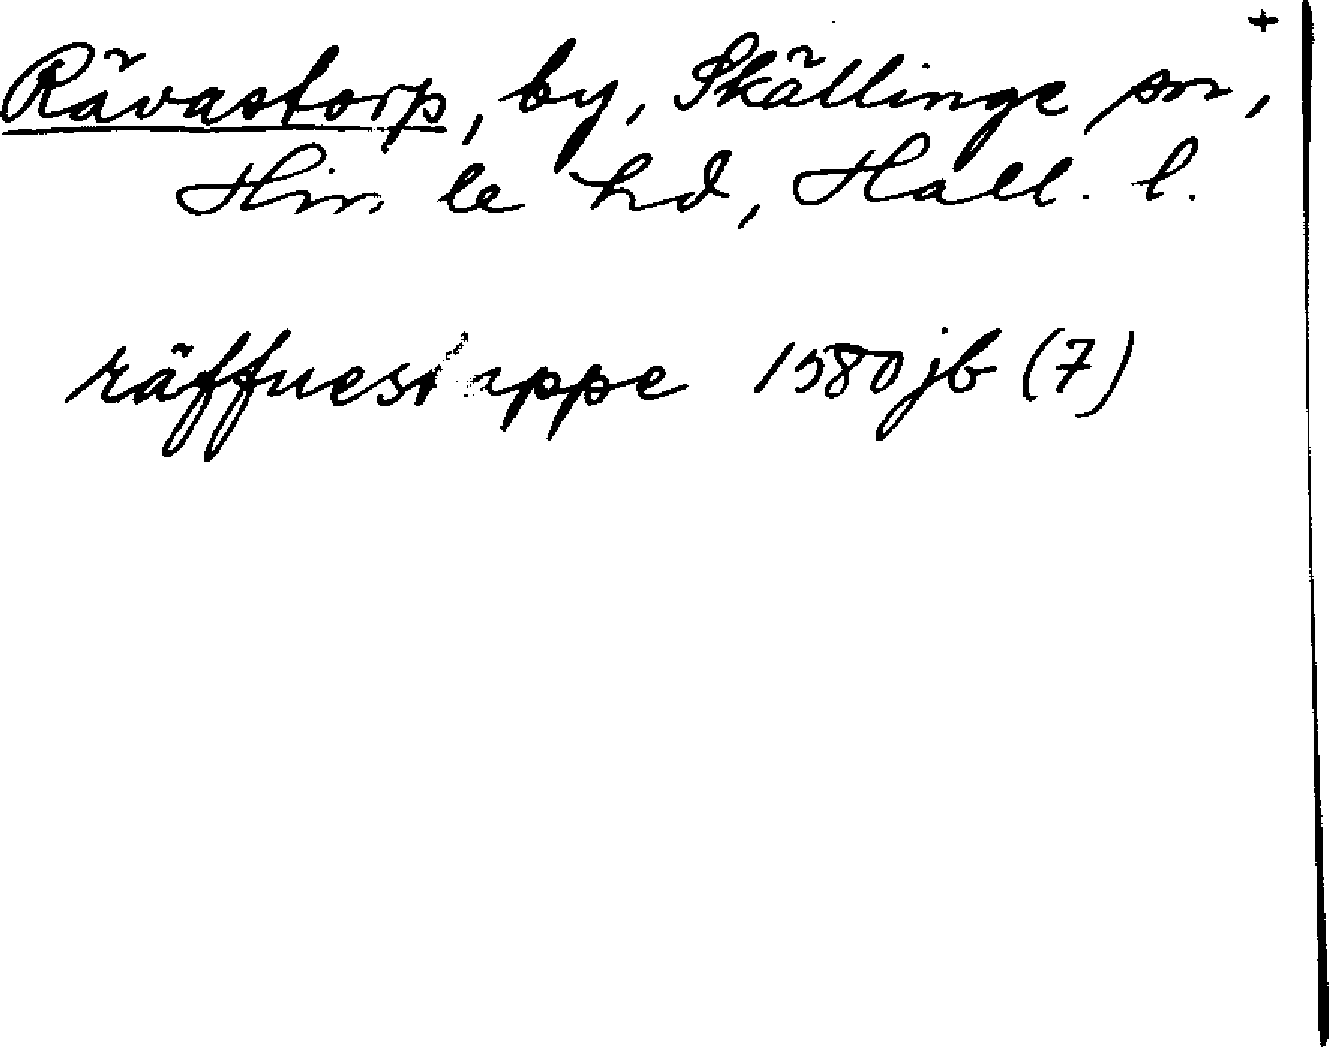 +
Rävastorp, by, Skällinge sn,
Himle hd, Hall. l.
1580 jb (7)